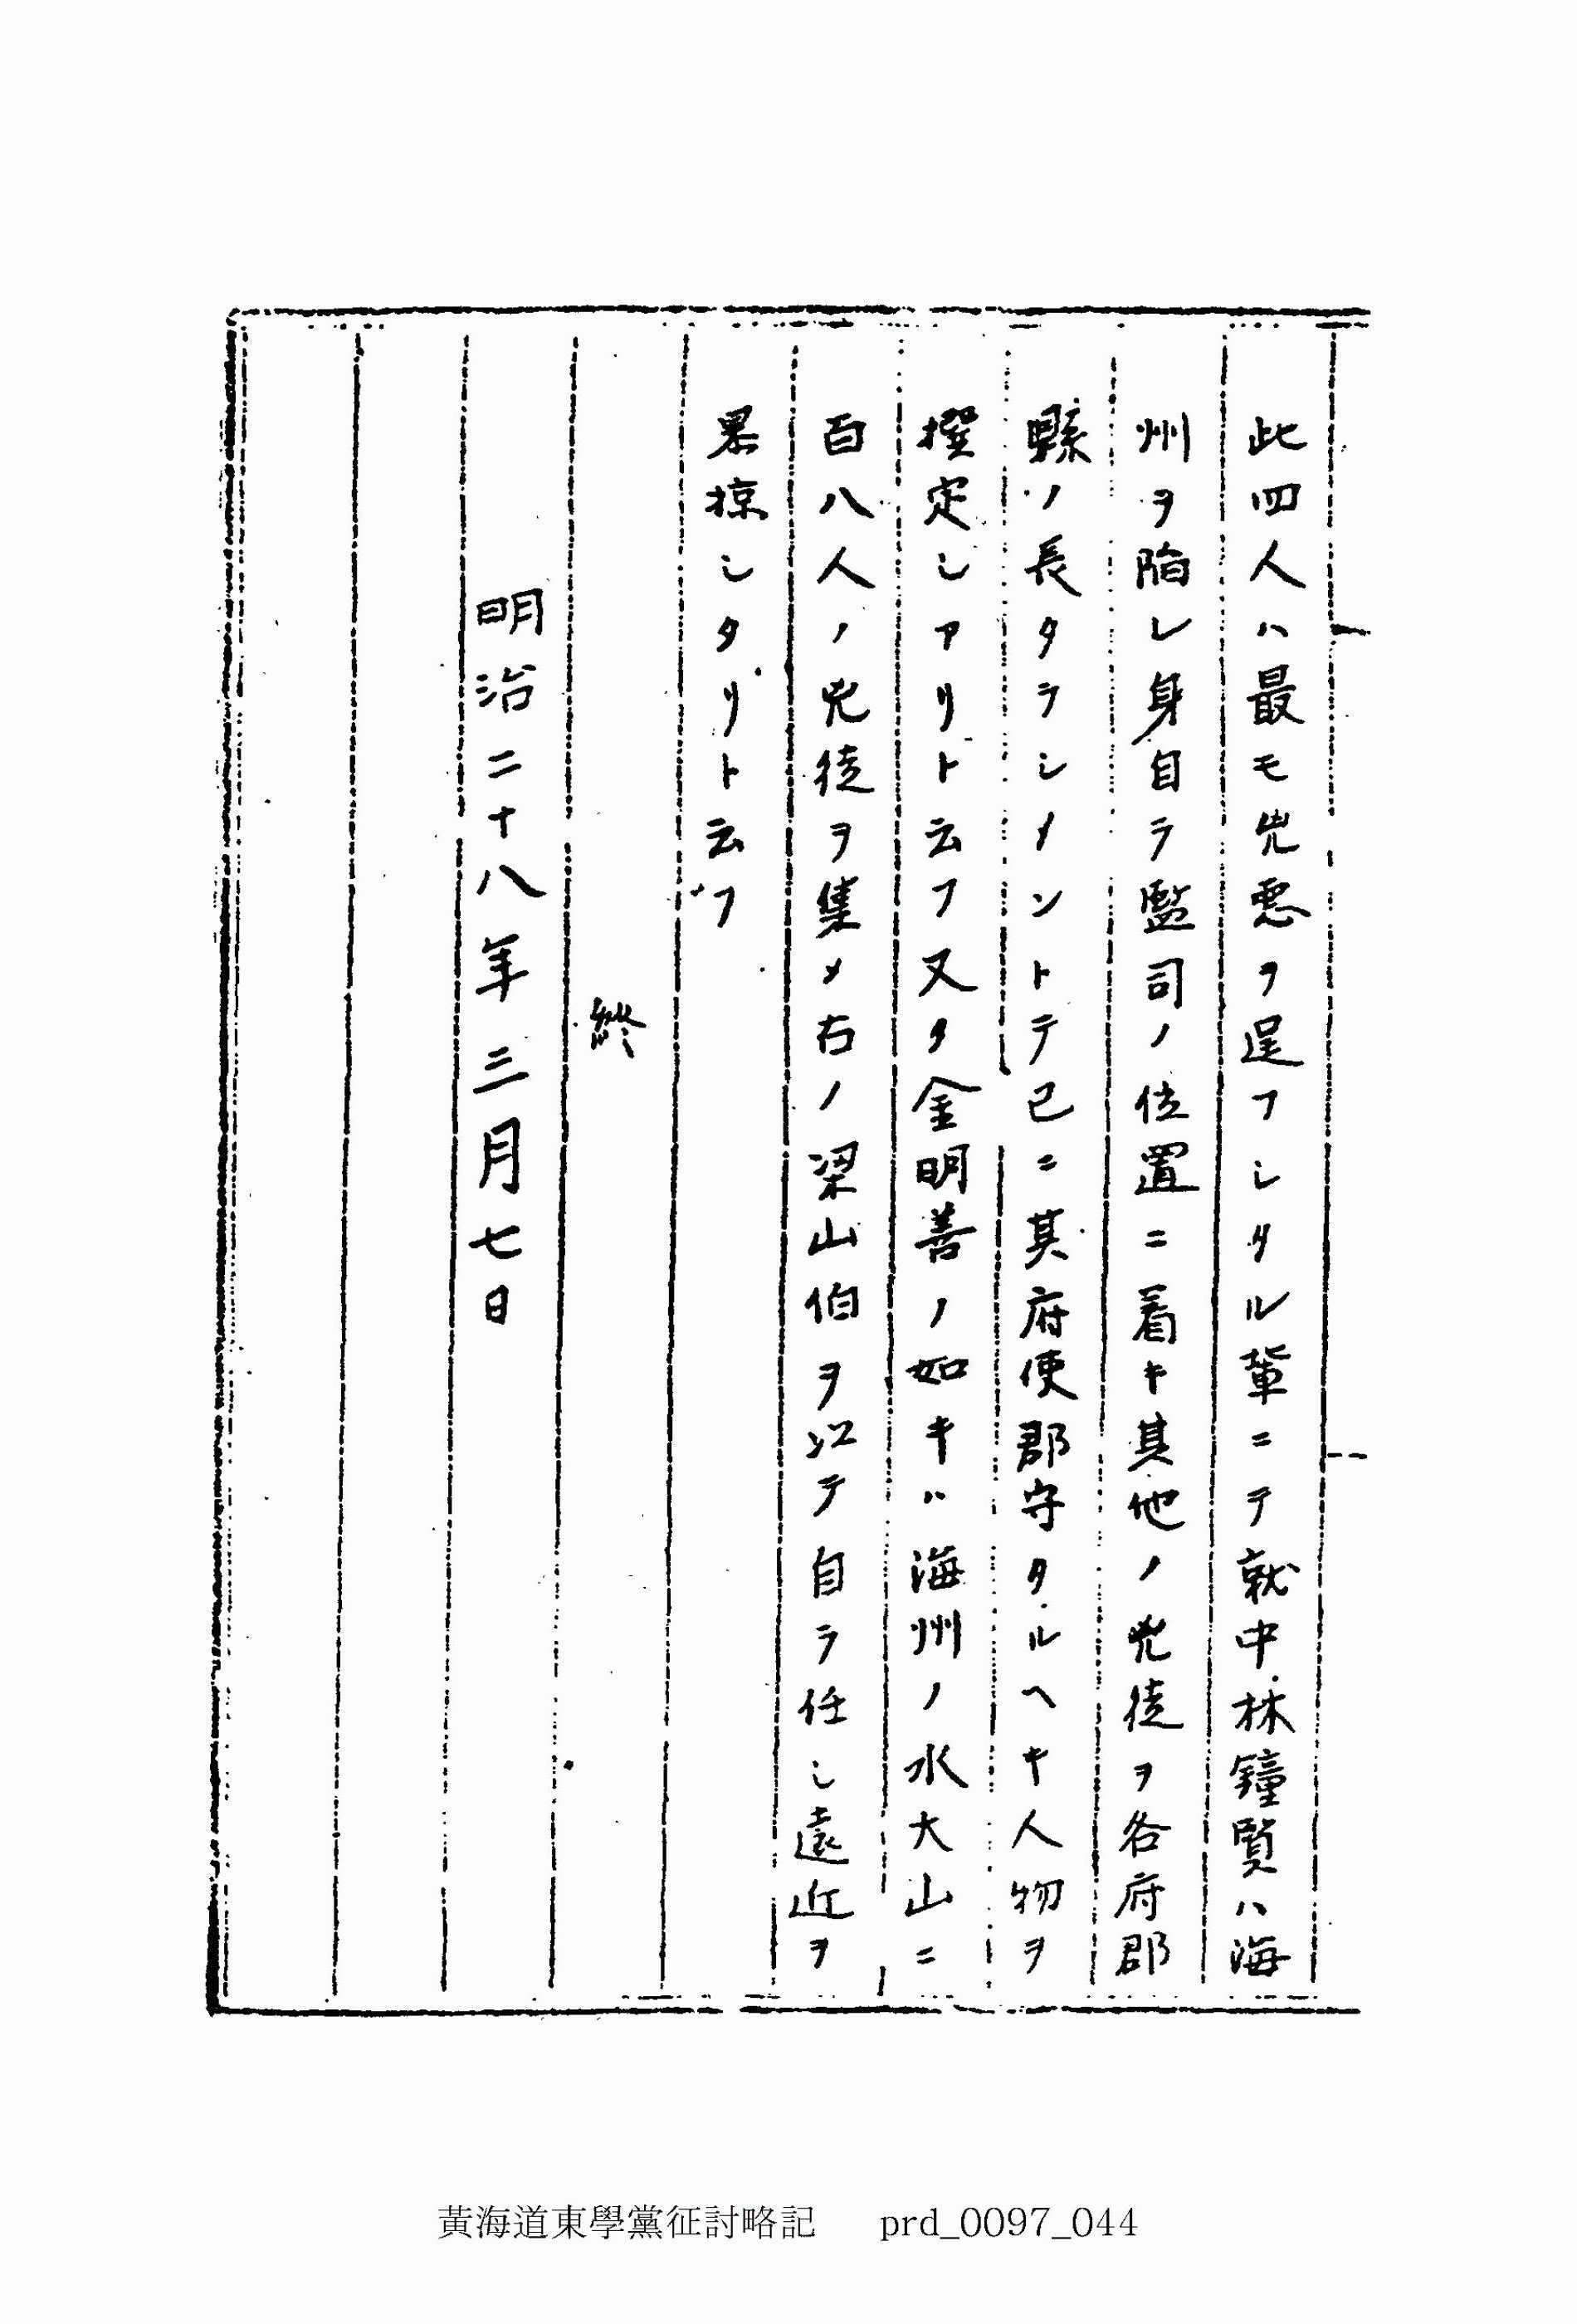 此四人ハ最モ兇悪ヲ逞フシタル輩ニテ就中林鐘賢ハ海
州ヲ陥レ身自ラ監司ノ位置ニ着キ其他ノ兇徒ヲ各府郡
縣ノ長タラシメントテ已ニ其府使郡守タルヘキ人物ヲ
撰定シアリト云フ又タ金明善ノ如キハ海州ノ水大山ニ
百八人ノ兇徒ヲ集メ右ノ梁山伯ヲ以テ自ラ任シ遠近ヲ
畧掠シタリト云フ
終
明治二十八年三月七日
黃海道東學黨征討略記 prd_0097_044